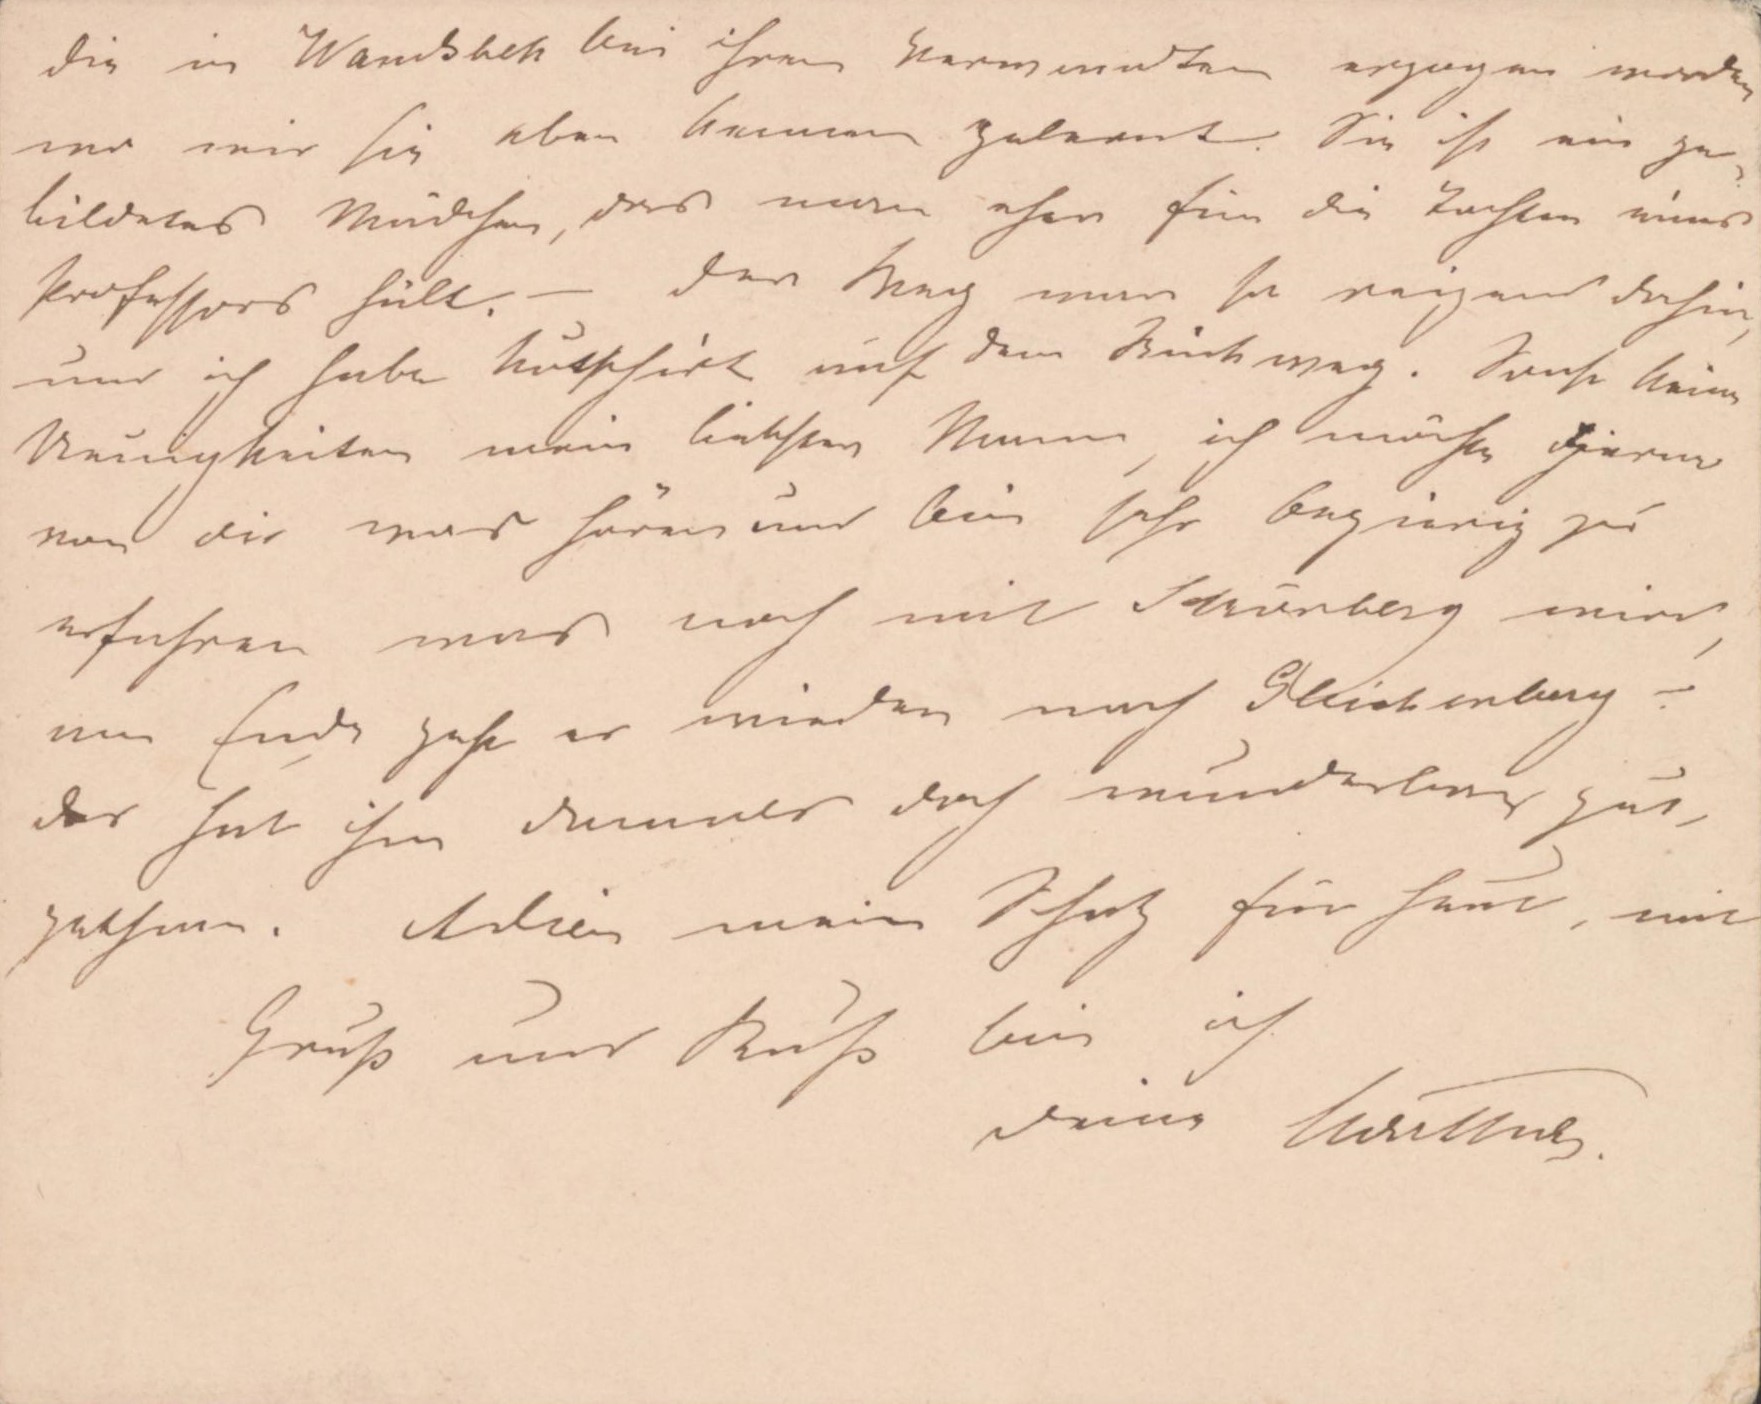 die in Wandsbek bei ihren Verwandten erzogen worden
wo wir sie eben kennen gelernt. Sie ist ein ge-
bildetes Mädchen, das man eher für die Tochter eines
Professors hält. — Der Weg war so reizend dahin,
und ich habe kutschirt auf dem Rückweg. Sonst keine
Neuigkeiten mein liebster Mann, ich möchte gerne
von dir was hören und bin sehr begierig zu
erfahren was noch mit wird,
am Ende geht er wieder nach Gleichenberg –
das hat ihm damals doch wunderbar gut
gethan. Adieu mein Schatz für heut, mit
Gruß und Kuß bin ich
deine